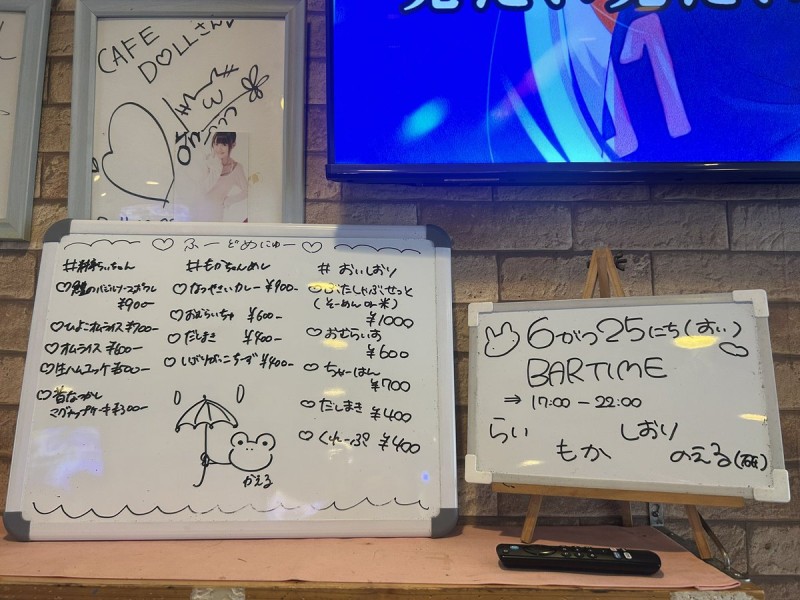 CAFE
DOLLさん♡
♡ ふーどめにゅー ♡
¥900-
♡ひよこオムライス ¥700-
♡オムライス ¥600-
♡生ハムユッケ ¥500-
♡昔なつかし
マグカップケーキ ¥300-
#もかちゃんめし
♡なつやさいカレー ¥900-
♡おむらいちゅ ¥600-
♡だしまき ¥400-
♡いぶりがっこちーず ¥400-
かえる
# おいしおり
♡ぶたしゃぶせっと
(そーめん or 米)
¥1000
♡おむらいす
¥600
♡ちゃーはん
¥700
♡だしまき ¥400
♡くれーぷ ¥400
6がつ25にち(すい)
BARTIME
⇒ 17:00 - 22:00
らい
もか
しおり
のえる